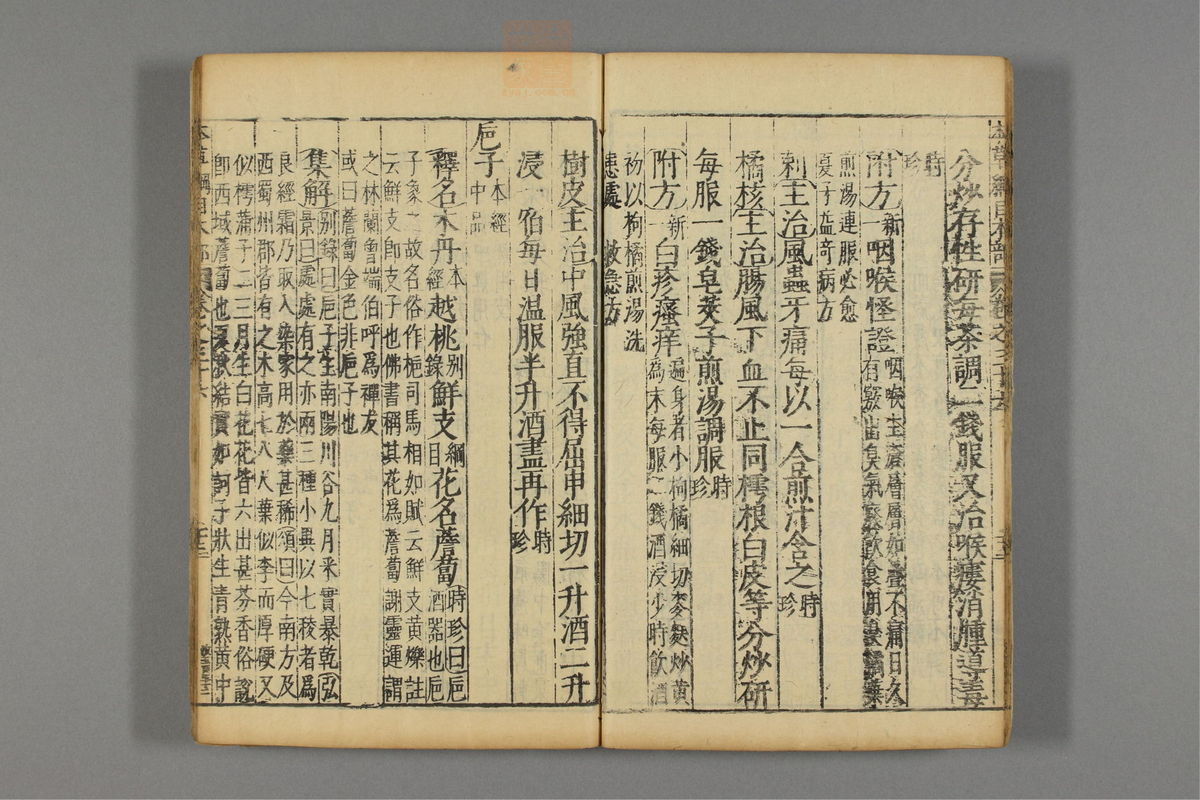 分炒存性研每茶調二錢服又治喉瘻消腫導毒
時珍
附方新一咽喉怪證咽喉生瘡層層如疊不痛日久有竅出臭氣廢飲食用臭橘葉
煎湯連服必愈夏子益奇病方
刺主治風蟲牙痛每以一合煎汁含之時珍
橘核主治腸風下血不止同樗根白皮等分炒研
每服一錢皂莢子煎湯調服時珍
附方新一白疹瘙痒遍身者小枸橘細切麥麩炒黄為末每服二錢酒浸少時飲酒
初以枸橘煎湯洗患處 救急方
樹皮主治中風強直不得屈申細切一升酒二升
浸一宿每日温服半升酒盡再作時珍
巵子本經中品
釋名木丹本經越桃别錄鮮支綱目花名薝蔔時珍曰巵酒器也巵
子象之故名俗作梔司馬相如賦云鮮支黄爍註
云鮮支即支子也佛書稱其花爲薝蔔謝靈運謂
之林蘭曾端伯呼爲禪友
或曰薝蔔金色非巵子也
集解别錄曰巵子生南陽川谷九月采實暴乾弘
景曰處處有之亦兩三種小異以七稜者爲
良經霜乃取入染家用於藥甚稀頌曰今南方及
西蜀州郡皆有之木高七八尺葉似李而厚硬又
似樗蒲子二三月生白花花皆六出甚芬香俗說
即西域薝蔔也夏秋結實如訶子狀生青熟黄中